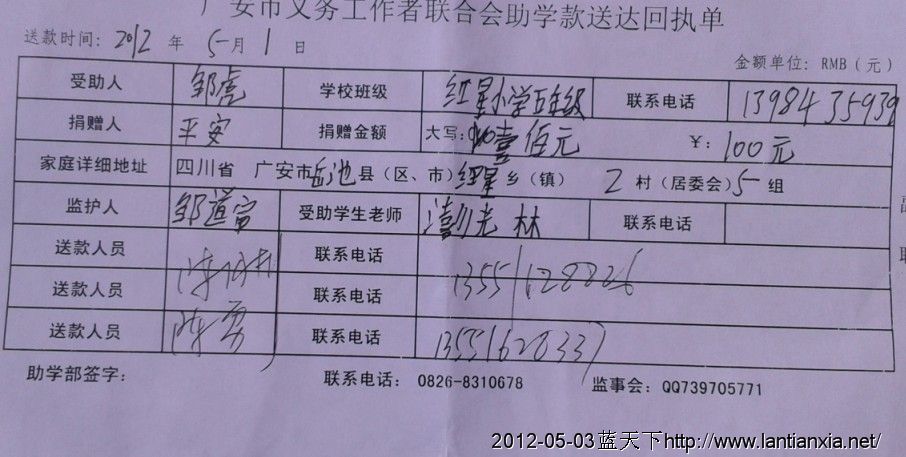 广安市义务工作者联合会助学款送达回执单
送款时间: 2012 年 5 月 1 日
金额单位: RMB（元）
受助人 邹虎 学校班级 红星小学五年级 联系电话 13984435939
捐赠人 平安 捐赠金额 大写: 壹佰元 ￥: 100元
家庭详细地址 四川省 广安市岳池县（区、市）红星乡（镇） 2 村（居委会）5 组
监护人 邹道富 受助学生老师 彭光林 联系电话
送款人员 联系电话 13551628826
送款人员 联系电话
送款人员 陈勇 联系电话 13551628337
助学部签字: 联系电话: 0826-8310678 监事会: QQ739705771
2012-05-03蓝天下http://www.lantianxia.net/